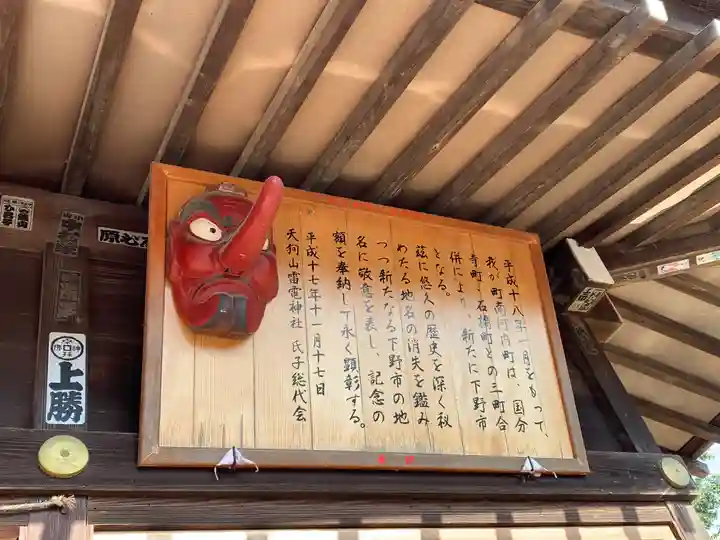 平成十八年一月をもって、
我が町南河内町は、国分
寺町・石橋町との三町合
併により、新たに下野市
となる。
茲に悠久の歴史を深く秋
めたる地名の消失を鑑み
つつ新たなる下野市の地
名に敬意を表し、記念の
額を奉納し永く顕彰する。
平成十七年十一月十七日
天狗山雷電神社 氏子総代会
上勝